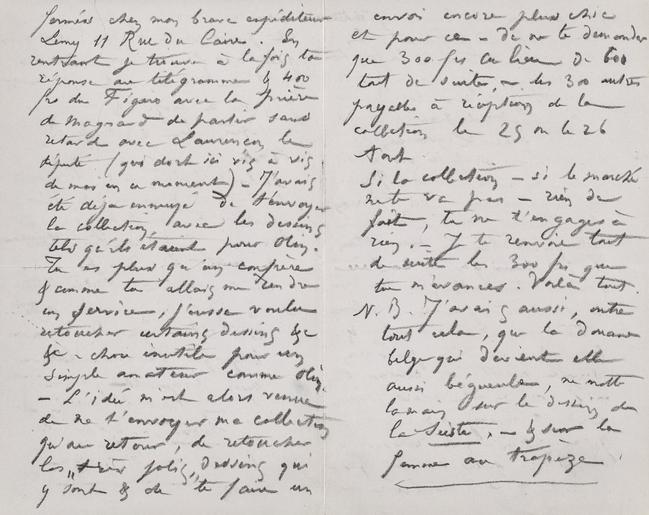 fermés chez mon brave expéditeur
Lemy 11 Rue du Caire. En
rentrant je trouve à la fois ta
réponse au télégramme & 400
frs du Figaro avec la prière
de Magnard de partir sans
retard avec Laurençon le
député (qui dort ici vis à vis
de moi en ce moment) – J'avais
été déjà ennuyé de t'envoyer
la collection avec les dessins
tels qu'ils étaient pour Olin.
Tu es plus qu'un confrère
& comme tu allais me rendre
un service, j'eusse voulu
retoucher certains dessins &c
&c – chose inutile pour un
simple amateur comme Olin.
– L'idée m'est alors venue
de ne t'envoyer ma collection
qu'au retour, de retoucher
les „très jolis„ dessins qui
y sont & de te faire un
envoi encore plus chic
et pour ce – de ne te demander
que 300 frs au lieu de 600
tout de suite, – les 300 autres
payables à réception de la
collection le 25 ou le 26
Aout
Si la collection – si le marché
ne te va pas – rien de
fait, tu ne t'engages à
rien. – Je te renvoie tout
de suite les 300 frs que
tu m'avances. Voilà tout.
N.B. J'avais aussi, outre
tout cela, que la douane
belge qui devient elle
aussi bégueule, ne mette
la main sur le dessin de
la Sieste, – & sur la
femme au trapèze